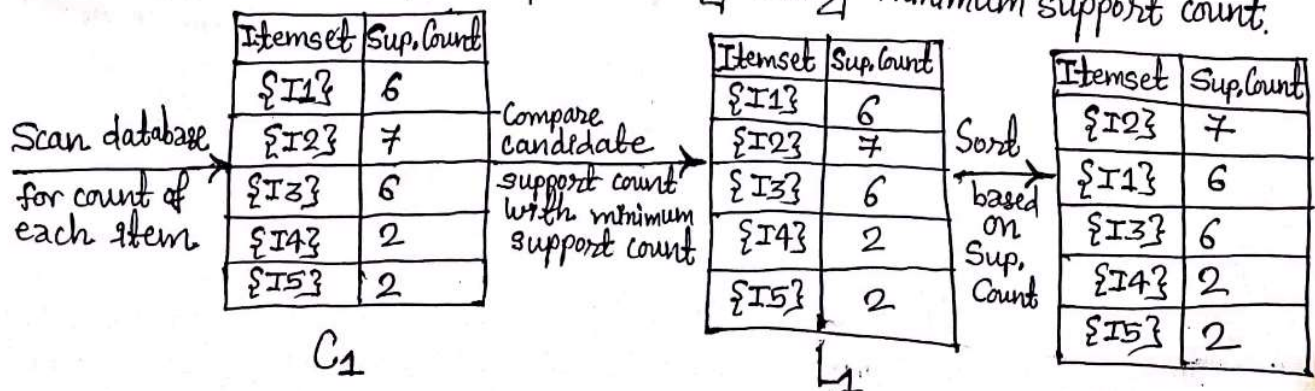 minimum support count.
Scan database
for count of
each item
Itemset Sup. Count
{I1} 6
{I2} 7
{I3} 6
{I4} 2
{I5} 2
C1
Compare
candidate
support count
with minimum
support count
Itemset Sup. Count
{I1} 6
{I2} 7
{I3} 6
{I4} 2
{I5} 2
L1
Sort
based
on
Sup.
Count
Itemset Sup. Count
{I2} 7
{I1} 6
{I3} 6
{I4} 2
{I5} 2